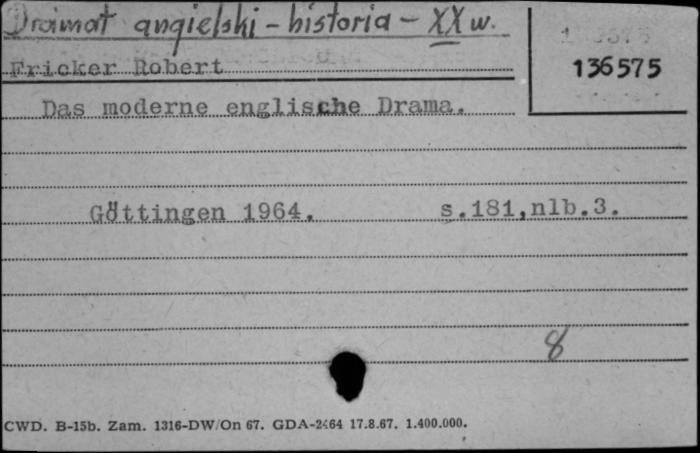 Dramat angielski - historia - XX w.
136575
Fricker Robert
Das moderne englische Drama.
Göttingen 1964. s.181,nlb.3.
8
CWD. B-15b. Zam. 1316-DW/On 67. GDA-2464 17.8.67. 1.400.000.